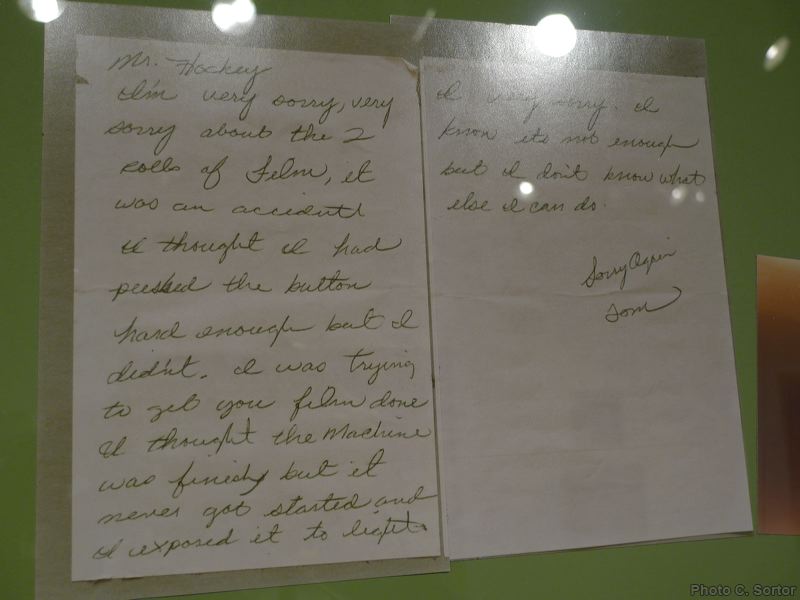 Mr. Hockey
I'm very sorry, very
sorry about the 2
rolls of film, it
was an accident!
I thought I had
pushed the button
hard enough but I
didn't. I was trying
to get you film done
I thought the Machine
was finish but it
never got started and
I exposed it to light.
I very sorry. I
know its not enough
but I don't know what
else I can do.
Sorry Again
Tom
Photo C. Sortor